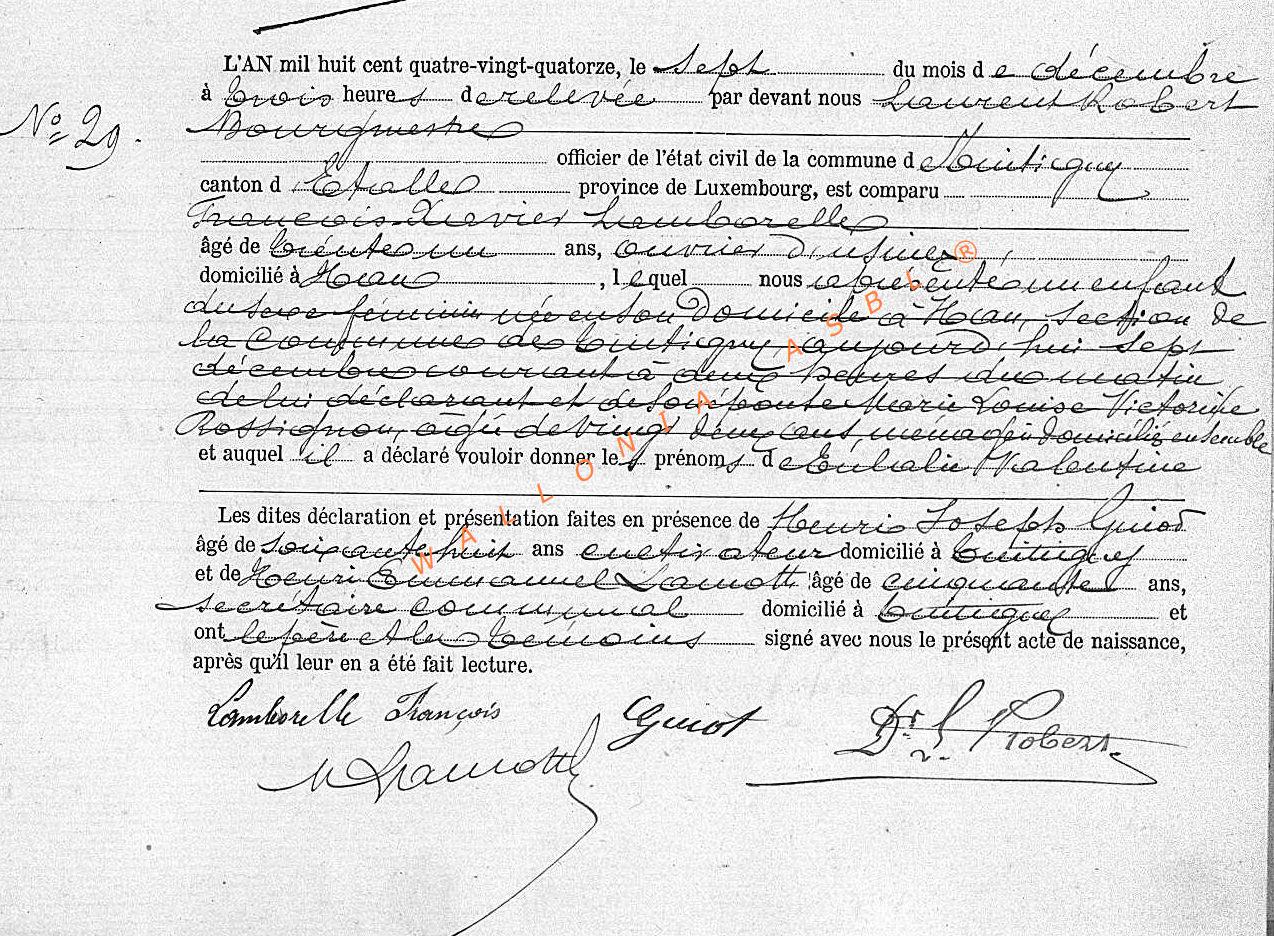 L'AN mil huit cent quatre-vingt-quatorze, le sept du mois de décembre
à trois heures de relevée par devant nous Laurent Robert
Nº 29.
Bourgmestre
officier de l'état civil de la commune de Tintigny
canton d'Etalle province de Luxembourg, est comparu
François Xavier Lamborelle
âgé de trente un ans, ouvrier d'usines,
domicilié à Han, lequel nous a présenté un enfant
du sexe féminin née en son domicile à Han, section de
la Commune de Tintigny, aujourd'hui sept
décembre courant à deux heures du matin
de lui déclarant et de son épouse Marie Louise Victorine
Rossignon, âgée de vingt deux ans, ménagère domiciliés ensemble
et auquel il a déclaré vouloir donner les prénoms de Eulalie Valentine
Les dites déclaration et présentation faites en présence de Henri Joseph Guiot
âgé de soixante huit ans cultivateur domicilié à Tintigny
et de Henri Emmanuel Lamotte âgé de cinquante ans,
secrétaire communal domicilié à Tintigny et
ont le père et les témoins signé avec nous le présent acte de naissance,
après qu'il leur en a été fait lecture.
Lamborelle François Guiot Dr L. Robert.
Lamotte
WALLONIA ASBL ®